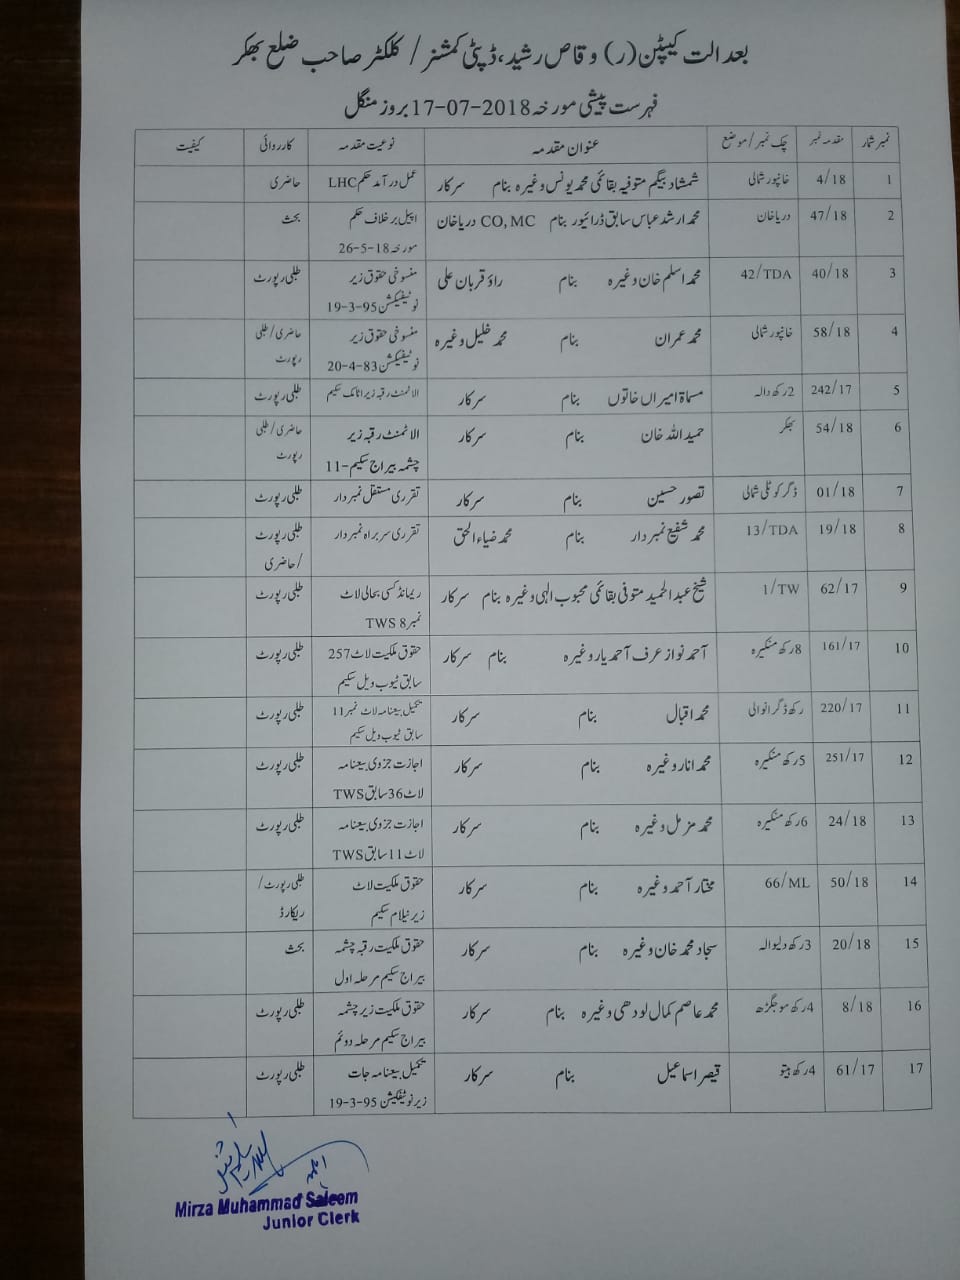 بعدالت کیپٹن(ر) وقاص رشید، ڈپٹی کمشنر / کلکٹر صاحب ضلع بھکر
فہرست پیشی مورخہ 2018-07-17 بروز منگل
نمبر شمار مقدمہ نمبر چک نمبر/موضع عنوان مقدمہ نوعیت مقدمہ کارروائی کیفیت
1 4/18 خانپور شمالی شمشاد بیگم متوفیہ بقائمی محمد یونس وغیرہ بنام سرکار عمل درآمد حکم LHC حاضری
2 47/18 دریاخان محمد ارشد عباس سابق ڈرائیور بنام CO, MC دریاخان اپیل بر خلاف حکم بحث
مورخہ 26-5-18
3 40/18 42/TDA محمد اسلم خان وغیرہ بنام راؤ قربان علی منسوخی حقوق زیر طلبی رپورٹ
نوٹیفکیشن 19-3-95
4 58/18 خانپور شمالی محمد عمران بنام محمد خلیل وغیرہ منسوخی حقوق زیر حاضری/طلبی
نوٹیفکیشن 20-4-83 رپورٹ
5 242/17 2رکھ دالہ مسماۃ امیراں خاتوں بنام سرکار الاٹمنٹ رقبہ زیر اٹامک سکیم طلبی رپورٹ
6 54/18 بھکر حمید اللہ خان بنام سرکار الاٹمنٹ رقبہ زیر حاضری/طلبی
چشمہ بیراج سکیم-11 رپورٹ
7 01/18 ڈگر کوٹلی شمالی تصور حسین بنام سرکار تقرری مستقل نمبردار طلبی رپورٹ
8 19/18 13/TDA محمد شفیع نمبردار بنام محمد ضیاءالحق تقرری سربراہ نمبردار طلبی رپورٹ
/حاضری
9 62/17 1/TW شیخ عبدالحمید متوفی بقائمی محبوب الٰہی وغیرہ بنام سرکار ریمانڈ کسی بحالی لاٹ طلبی رپورٹ
نمبر 8 TWS
10 161/17 8رکھ منکیرہ آحمد نواز عرف آحمد یار وغیرہ بنام سرکار حقوق ملکیت لاٹ 257 طلبی رپورٹ
سابق ٹیوب ویل سکیم
11 220/17 رکھ ڈگرانوالی محمد اقبال بنام سرکار تکمیل بیعنامہ لاٹ نمبر 11 طلبی رپورٹ
سابق ٹیوب ویل سکیم
12 251/17 5رکھ منکیرہ محمد انار وغیرہ بنام سرکار اجازت جزوی بیعنامہ طلبی رپورٹ
لاٹ 36 سابق TWS
13 24/18 6رکھ منکیرہ محمد مزمل وغیرہ بنام سرکار اجازت جزوی بیعنامہ طلبی رپورٹ
لاٹ 11 سابق TWS
14 50/18 66/ML مختار آحمد وغیرہ بنام سرکار حقوق ملکیت لاٹ طلبی رپورٹ/
زیر نیلام سکیم ریکارڈ
15 20/18 3رکھ دلیوالہ سجاد محمد خان وغیرہ بنام سرکار حقوق ملکیت رقبہ چشمہ بحث
بیراج سکیم مرحلہ اول
16 8/18 4رکھ موجگڑھ محمد عاصم کمال لودھی وغیرہ بنام سرکار حقوق ملکیت زیر چشمہ طلبی رپورٹ
بیراج سکیم مرحلہ دوئم
17 61/17 4رکھ بیتو قیصر اسماعیل بنام سرکار تکمیل بیعنامہ جات طلبی رپورٹ
زیر نوٹیفکیشن 19-3-95
Mirza Muhammad Saleem
Junior Clerk